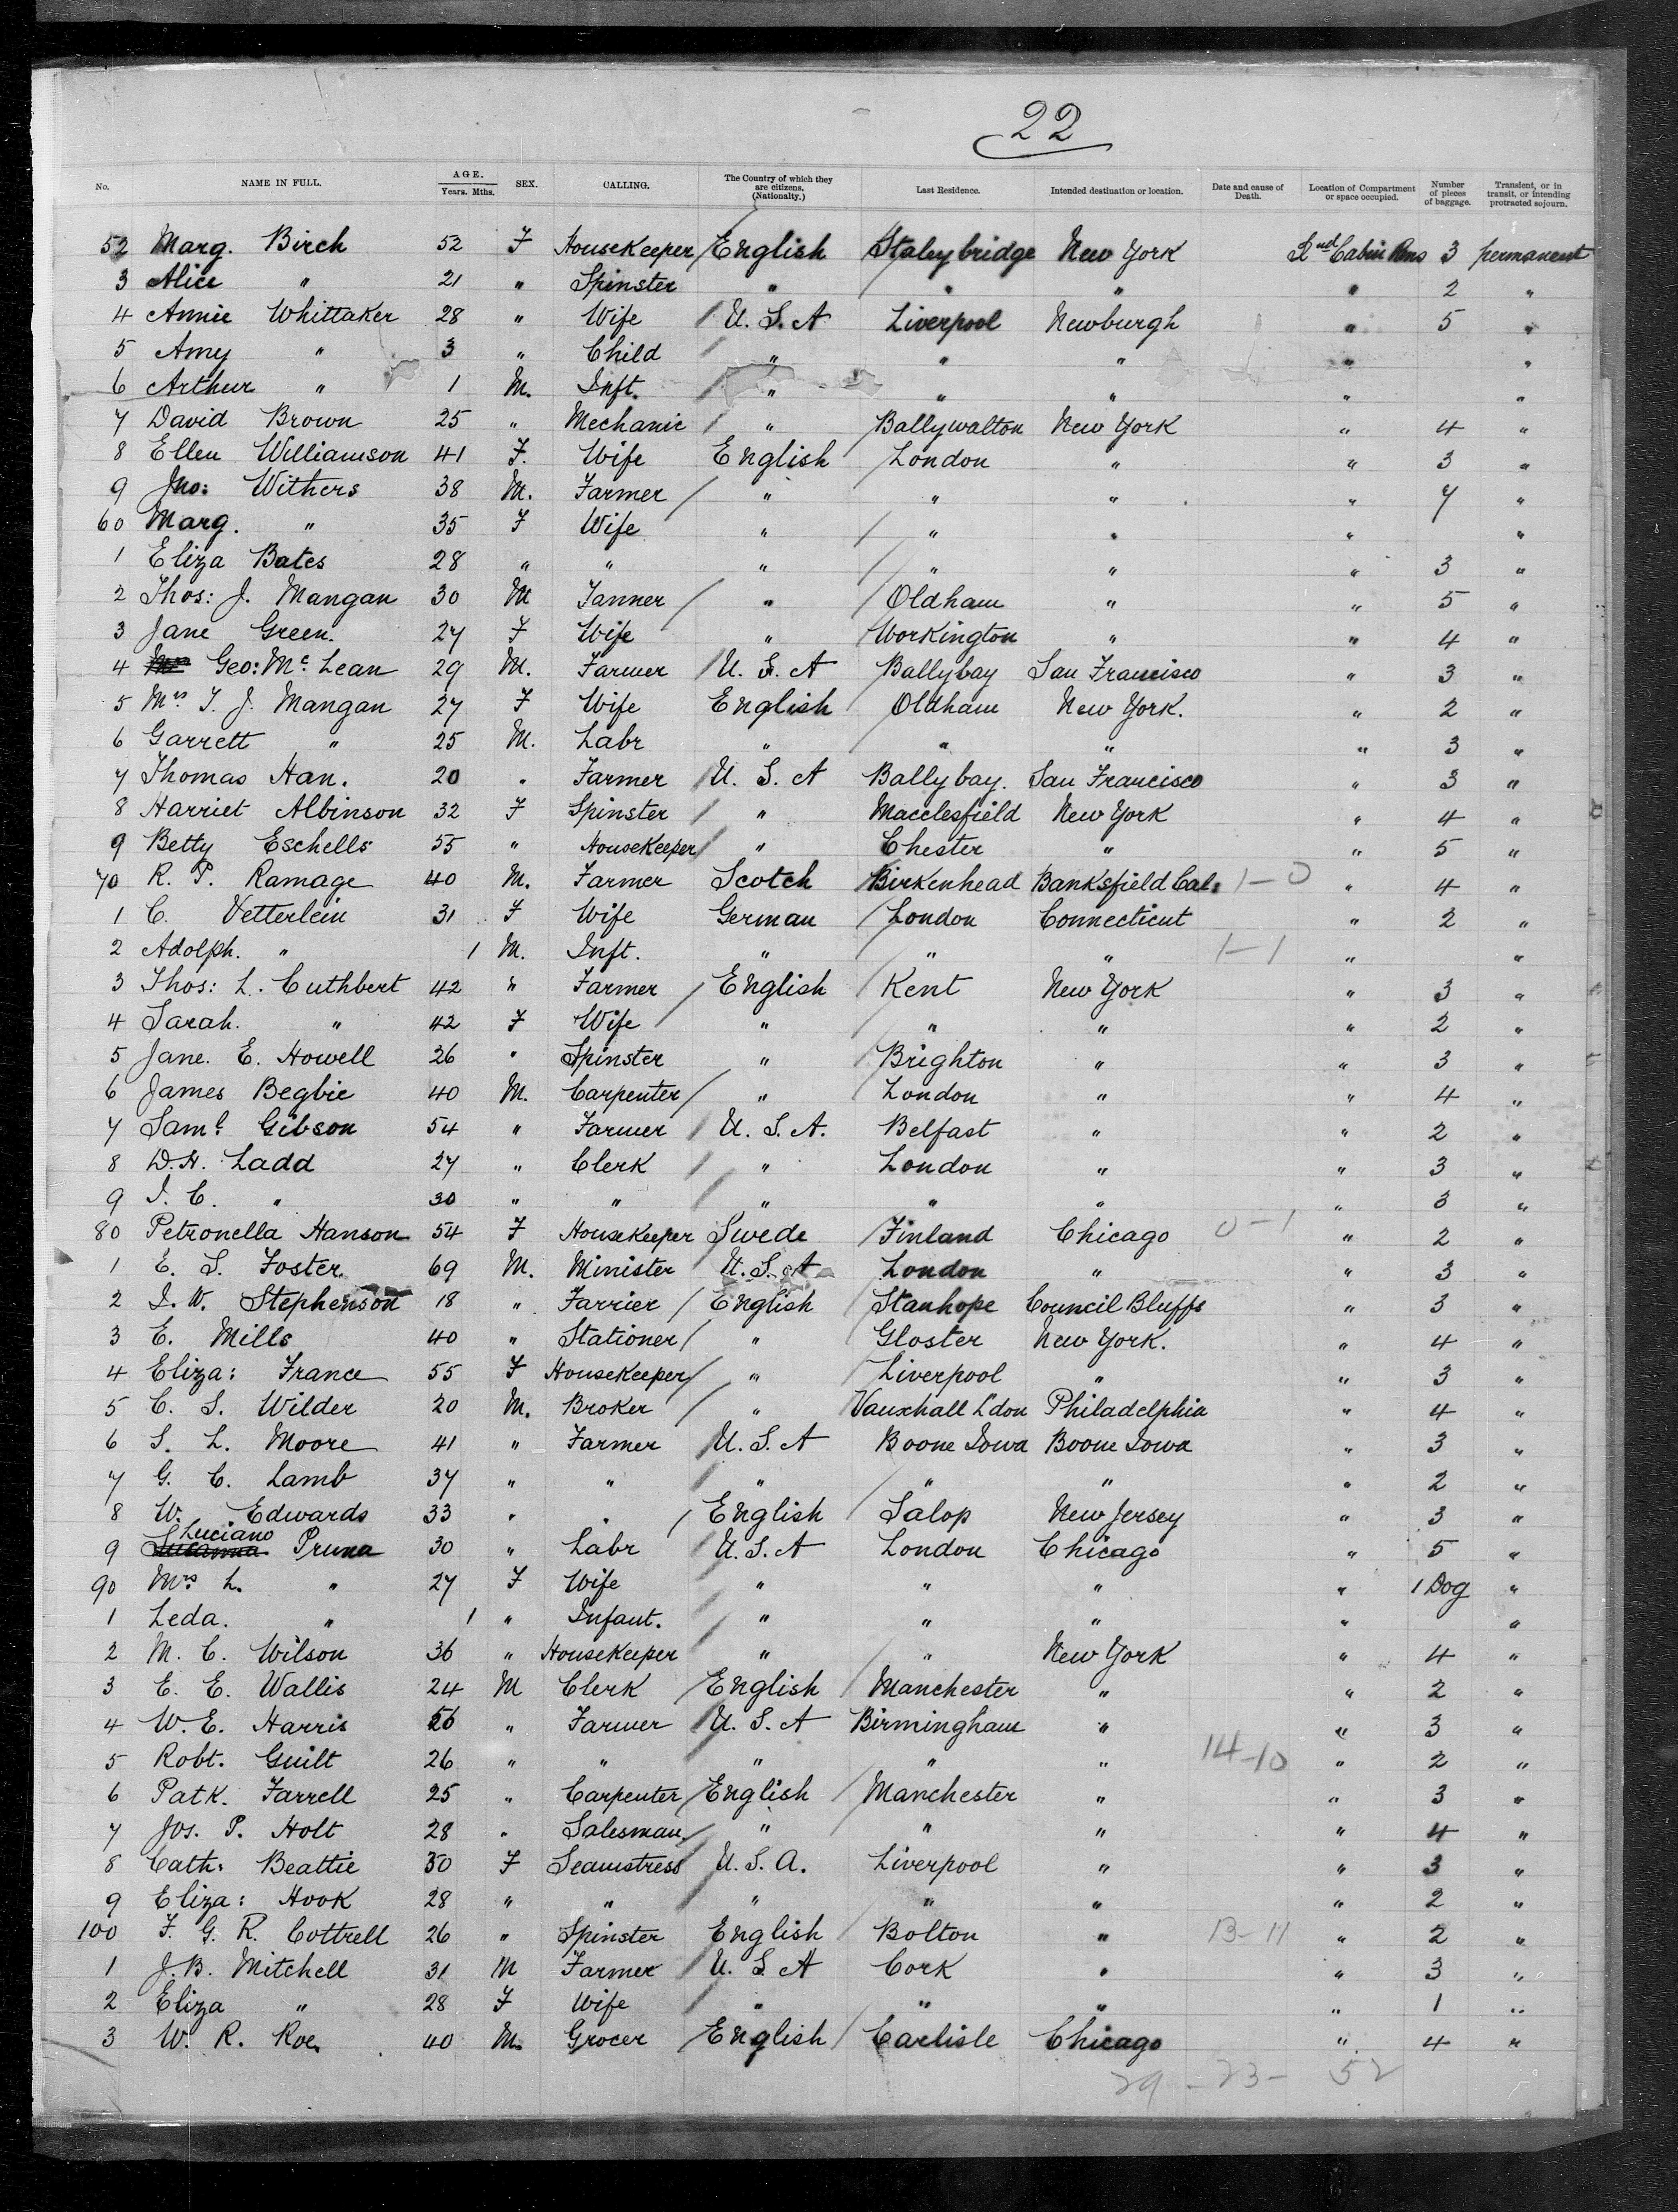 22
No. NAME IN FULL. AGE. Years. Mths. SEX. CALLING. The Country of which they are citizens, (Nationalty.) Last Residence. Intended destination or location. Date and cause of Death. Location of Compartment or space occupied. Number of pieces of baggage. Transient, or in transit, or intending protracted sojourn.
52 Marg. Birch 52 F Housekeeper English Staleybridge New York 2nd Cabin Rms 3 permanent
3 Alice " 21 " Spinster " " " " 2 "
4 Annie Whittaker 28 " Wife U. S. A Liverpool Newburgh " 5 "
5 Amy " 3 " Child " " " " "
6 Arthur " 1 M. Inft. " " " " "
7 David Brown 25 " Mechanic " Ballywalton New York " 4 "
8 Ellen Williamson 41 F. Wife English London " " 3 "
9 Jno: Withers 38 M. Farmer " " " " 7 "
60 Marg. " 35 F Wife " " " " "
1 Eliza Bates 28 " " " " " " 3 "
2 Thos: J. Mangan 30 M Tanner " Oldham " " 5 "
3 Jane Green. 27 F Wife " Workington " " 4 "
4 Geo: Mc Lean 29 M. Farmer U. S. A Ballybay San Francisco " 3 "
5 Mrs T. J. Mangan 27 F Wife English Oldham New York. " 2 "
6 Garrett " 25 M. Labr " " " " 3 "
7 Thomas Han. 20 " Farmer U. S. A Ballybay. San Francisco " 3 "
8 Harriet Albinson 32 F Spinster " Macclesfield New York " 4 "
9 Betty Eschells 55 " Housekeeper " Chester " " 5 "
70 R. P. Ramage 40 M. Farmer Scotch Birkenhead Banksfield Cal. 1-0 " 4 "
1 C. Vetterlein 31 F Wife German London Connecticut " 2 "
2 Adolph. " 1 M. Inft. " " " 1-1 " "
3 Thos: L. Cuthbert 42 " Farmer English Kent New York " 3 "
4 Sarah. " 42 F Wife " " " " 2 "
5 Jane. E. Howell 26 " Spinster " Brighton " " 3 "
6 James Begbie 40 M. Carpenter " London " " 4 "
7 Saml. Gibson 54 " Farmer U. S. A. Belfast " " 2 "
8 D. H. Ladd 27 " Clerk " London " " 3 "
9 I. C. " 30 " " " " " " 3 "
80 Petronella Hanson 54 F Housekeeper Swede Finland Chicago 0-1 " 2 "
1 E. S. Foster. 69 M. Minister U. S. A London " " 3 "
2 I. W. Stephenson 18 " Farrier English Stanhope Council Bluffs " 3 "
3 E. Mills 40 " Stationer " Gloster New York. " 4 "
4 Eliza: France 55 F Housekeeper " Liverpool " " 3 "
5 C. S. Wilder 20 M. Broker " Vauxhall Ldon Philadelphia " 4 "
6 S. L. Moore 41 " Farmer U. S. A Boone Iowa Boone Iowa " 3 "
7 G. C. Lamb 37 " " " " " " 2 "
8 W. Edwards 33 " " English Salop New Jersey " 3 "
Luciano
9 Susanna Pruna 30 " Labr U. S. A London Chicago " 5 "
90 Mrs L. " 27 F Wife " " " " 1 Dog "
1 Leda. " 1 " Infant. " " " " "
2 M. C. Wilson 36 " Housekeeper " " New York " 4 "
3 E. E. Wallis 24 M Clerk English Manchester " " 2 "
4 W. E. Harris 56 " Farmer U. S. A Birmingham " " 3 "
5 Robt. Guilt 26 " " " " " 14-10 " 2 "
6 Patk. Farrell 25 " Carpenter English Manchester " " 3 "
7 Jos. P. Holt 28 " Salesman " " " " 4 "
8 Cath: Beattie 30 F Seamstress U. S. A. Liverpool " " 3 "
9 Eliza: Hook 28 " " " " " " 2 "
100 F. G. R. Cottrell 26 " Spinster English Bolton " 13-11 " 2 "
1 J. B. Mitchell 31 M Farmer U. S. A Cork " " 3 "
2 Eliza " 28 F Wife " " " " 1 "
3 W. R. Roe. 40 M. Grocer English Carlisle Chicago " 4 "
29-23-52